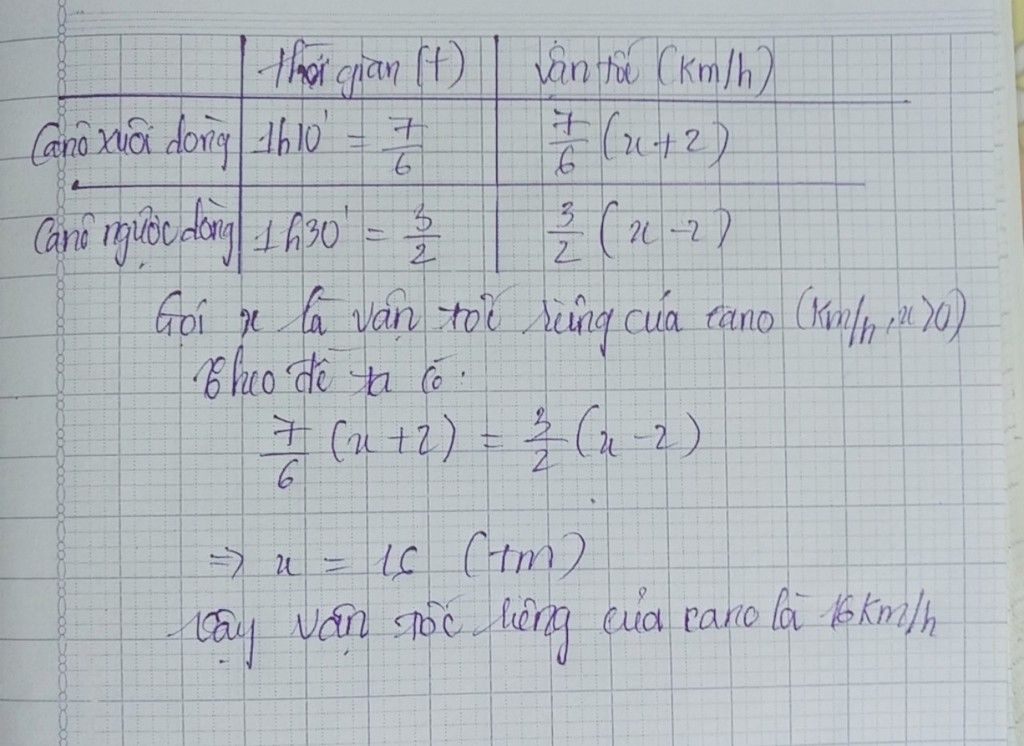 thời gian (t) vận tốc (km/h)
Canô xuôi dòng 1h10' = 7/6 7/6 (x+2)
Canô ngược dòng 1h30' = 3/2 3/2 (x-2)
Gọi x là vận tốc riêng của cano (km/h, x>0)
Theo đề ta có:
7/6 (x+2) = 3/2 (x-2)
=> x = 16 (tm)
Vậy vận tốc riêng của cano là 16km/h